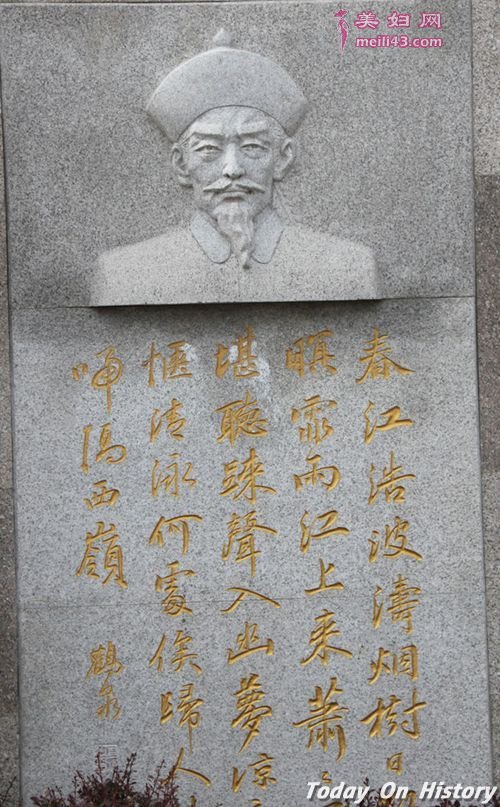 美妇网
meili43.com
春江浩波濤烟樹日
暝霏雨江上来蕭
堪聽踈聲入幽夢凉
惬清泳何處俟歸人
啼隔西嶺
鶴泉
Today On History